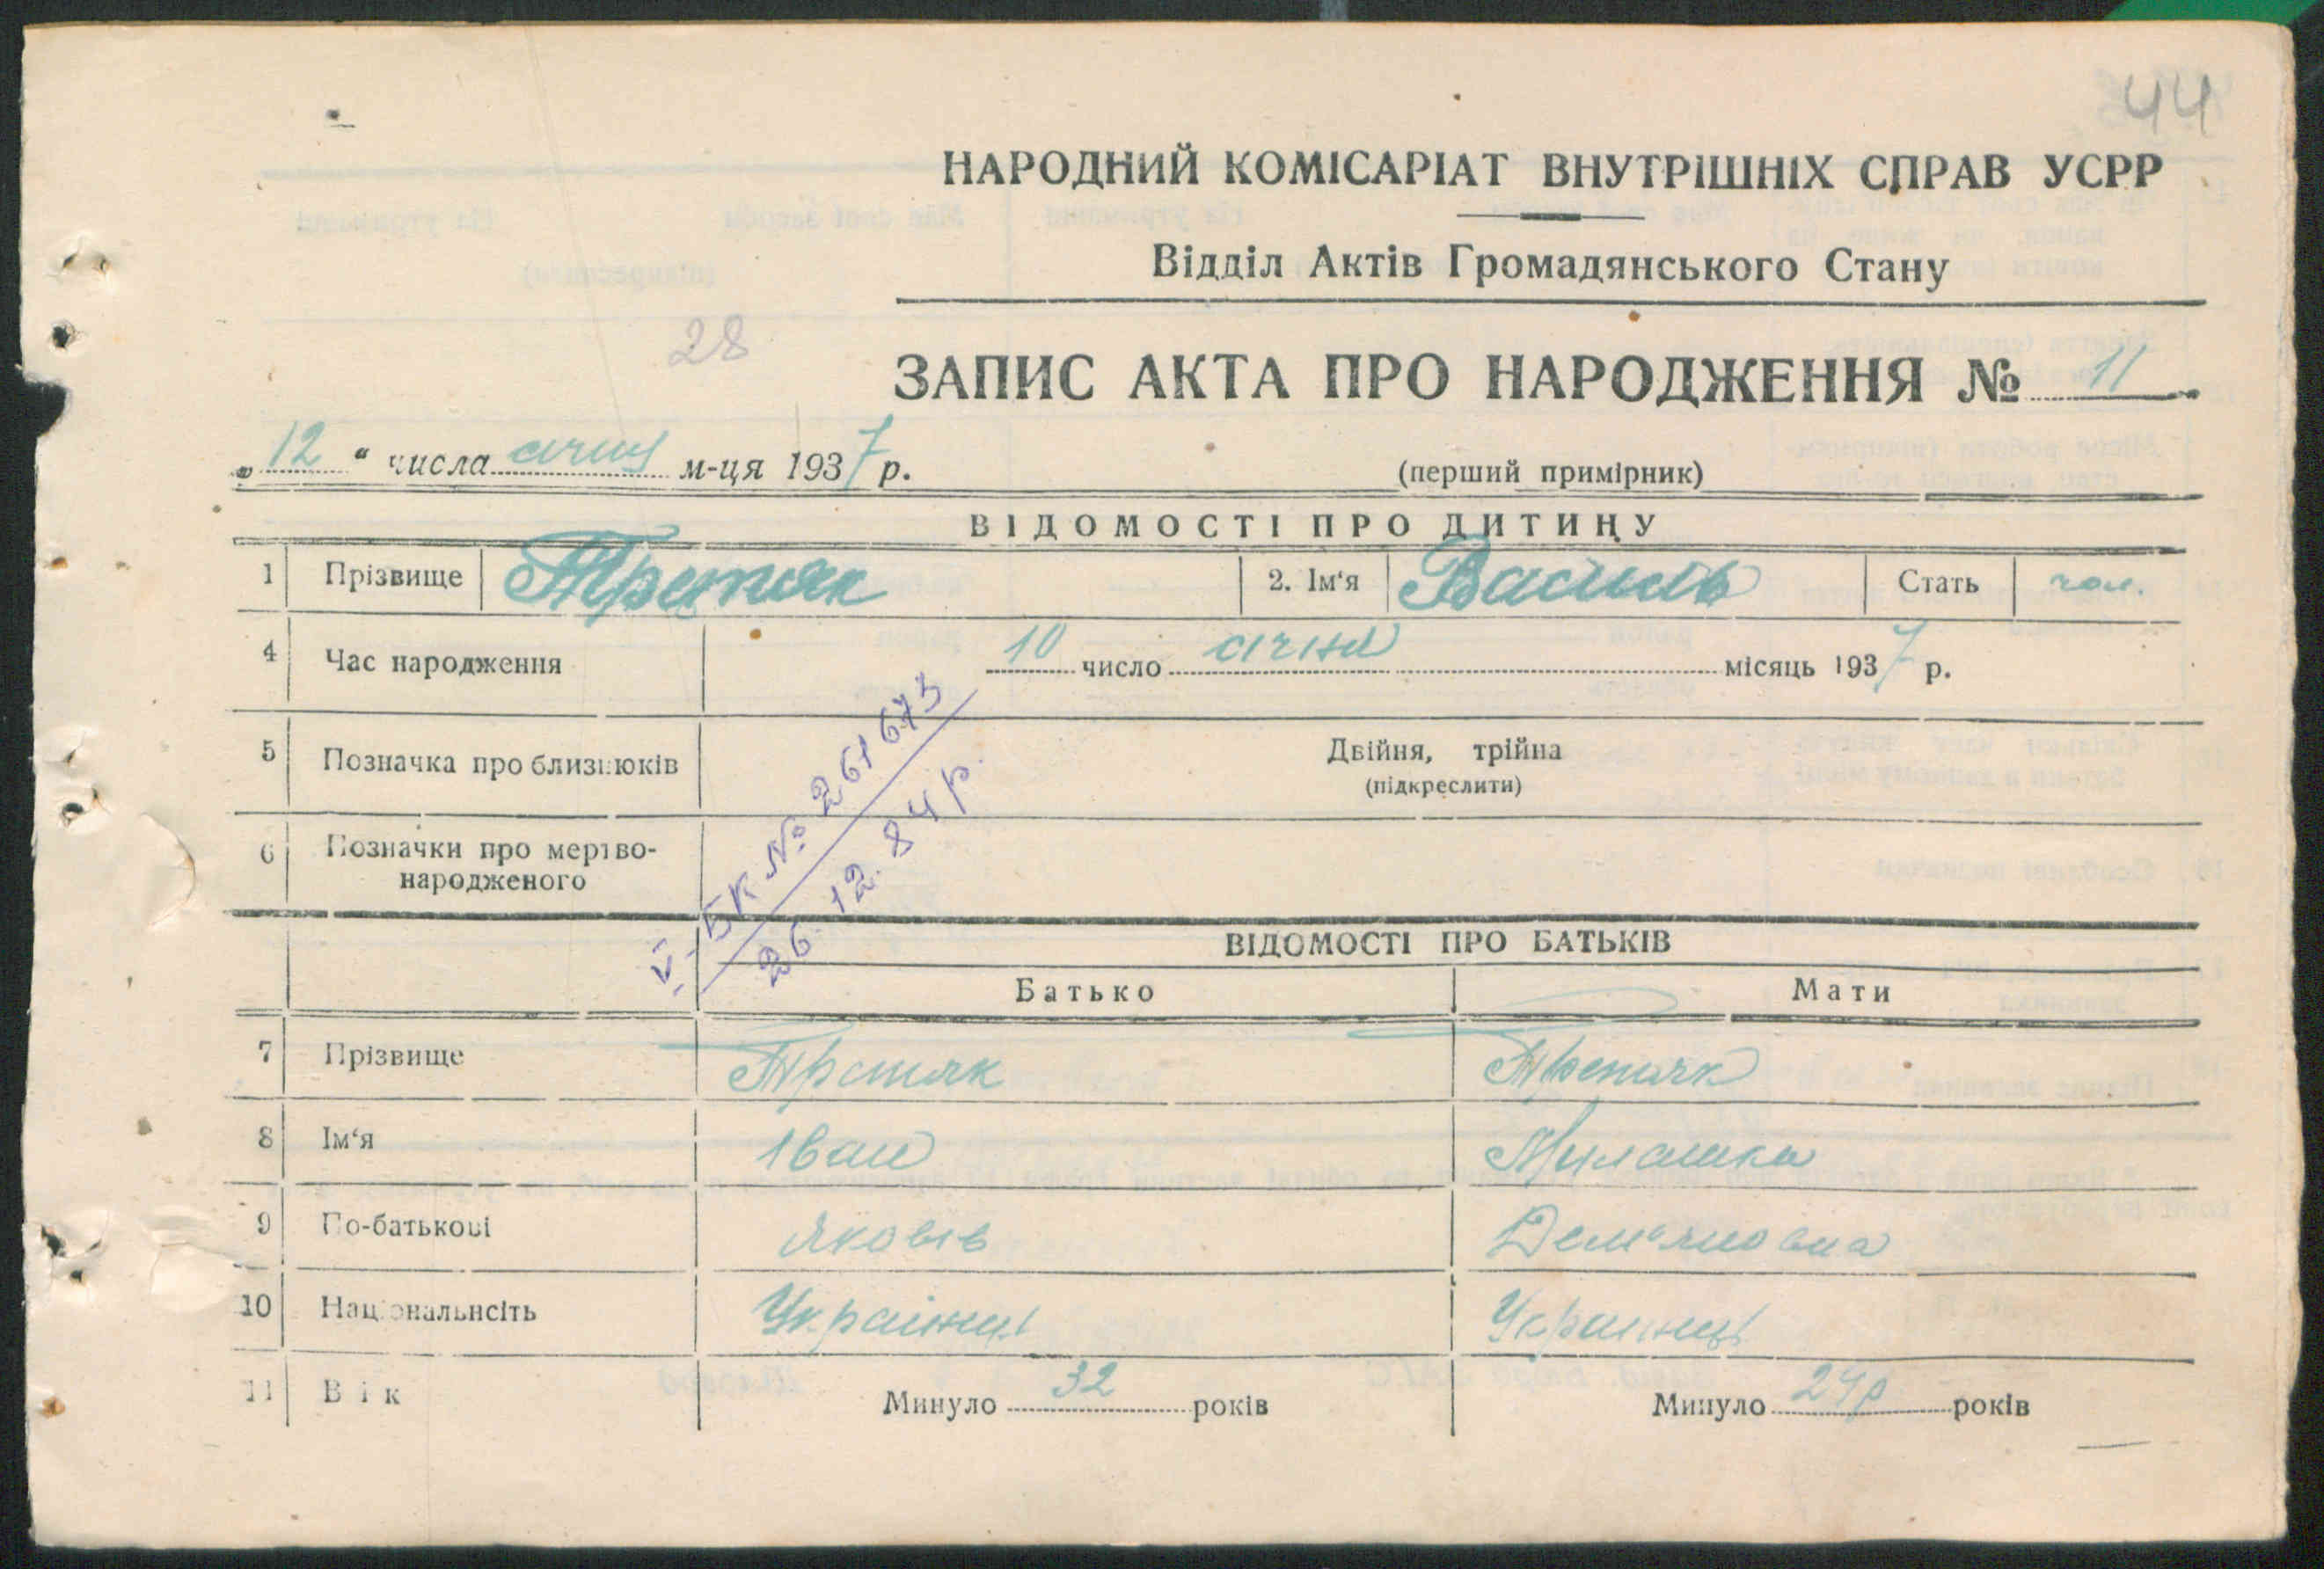 44
НАРОДНИЙ КОМІСАРІАТ ВНУТРІШНІХ СПРАВ УСРР
Відділ Актів Громадянського Стану
28
ЗАПИС АКТА ПРО НАРОДЖЕННЯ № 11
„ 12 " числа січня м-ця 1937 р.
(перший примірник)
ВІДОМОСТІ ПРО ДИТИНУ
1 Прізвище Третяк 2. Ім'я Василь Стать чол.
4 Час народження 10 число січня місяць 1937 р.
5 Позначка про близнюків Двійня, трійна
(підкреслити)
6 Позначки про мертво-
народженого
V-БК № 261673
26.12.84 р.
ВІДОМОСТІ ПРО БАТЬКІВ
Батько Мати
7 Прізвище Третяк Третяк
8 Ім'я Іван Милашка
9 По-батькові Яковів Дем'яновна
10 Національнсіть Українці Українці
11 Вік Минуло 32 років Минуло 24р років